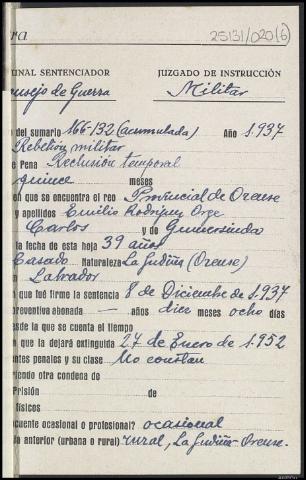 ra
25131/020(6)
UNAL SENTENCIADOR
JUZGADO DE INSTRUCCIÓN
nsejo de Guerra
Militar
o del sumario 166-132 (acumulada) Año 1.937
Rebelión militar
e Pena Reclusión temporal
quince meses
en que se encuentra el reo Provincial de Orense
y apellidos Emilio Rodríguez
Carlos y de Gumersinda
la fecha de esta hoja 39 años
Casado Naturaleza La Gudiña (Orense)
Labrador
n que fué firme la sentencia 8 de Diciembre de 1.937
preventivo abonada — años diez meses ocho días
esde la que se cuenta el tiempo
n que la dejará extinguida 27 de Enero de 1.952
ntes penales y su clase No constan
riendo otra condena de
Prisión de
físicos
cuente ocasional o profesional? ocasional
ia anterior (urbana o rural) rural, La Gudiña-Orense.